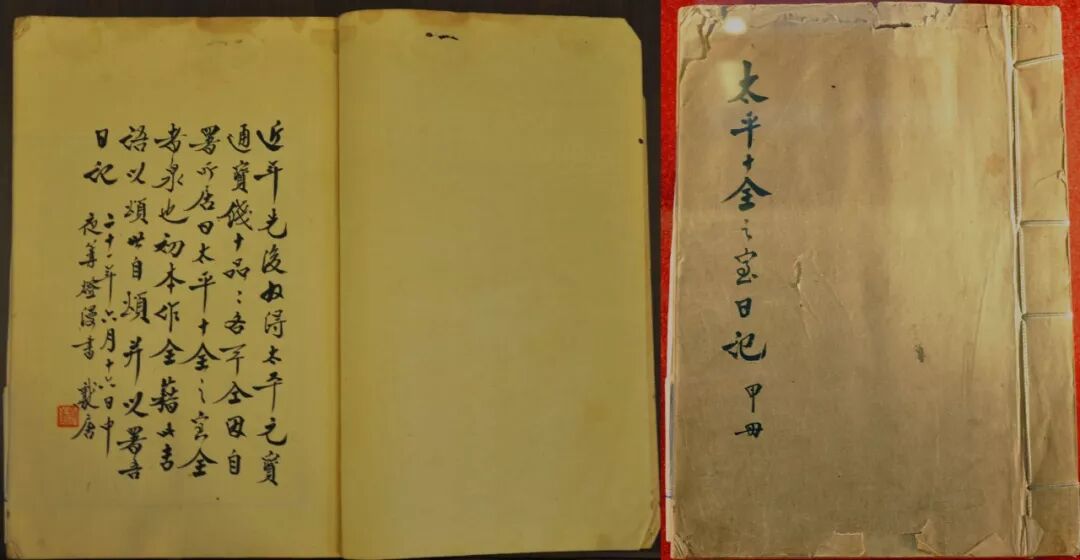 近年先後收得太平元寶
通寶錢十品〻各不仝因自
署所居曰太平十全之室全
者泉也初本作全藉此吉
語以頌世自頌并以署吾
日記
二十一年六月十六日中
夜篝燈漫書
太平十全之室日記 甲冊